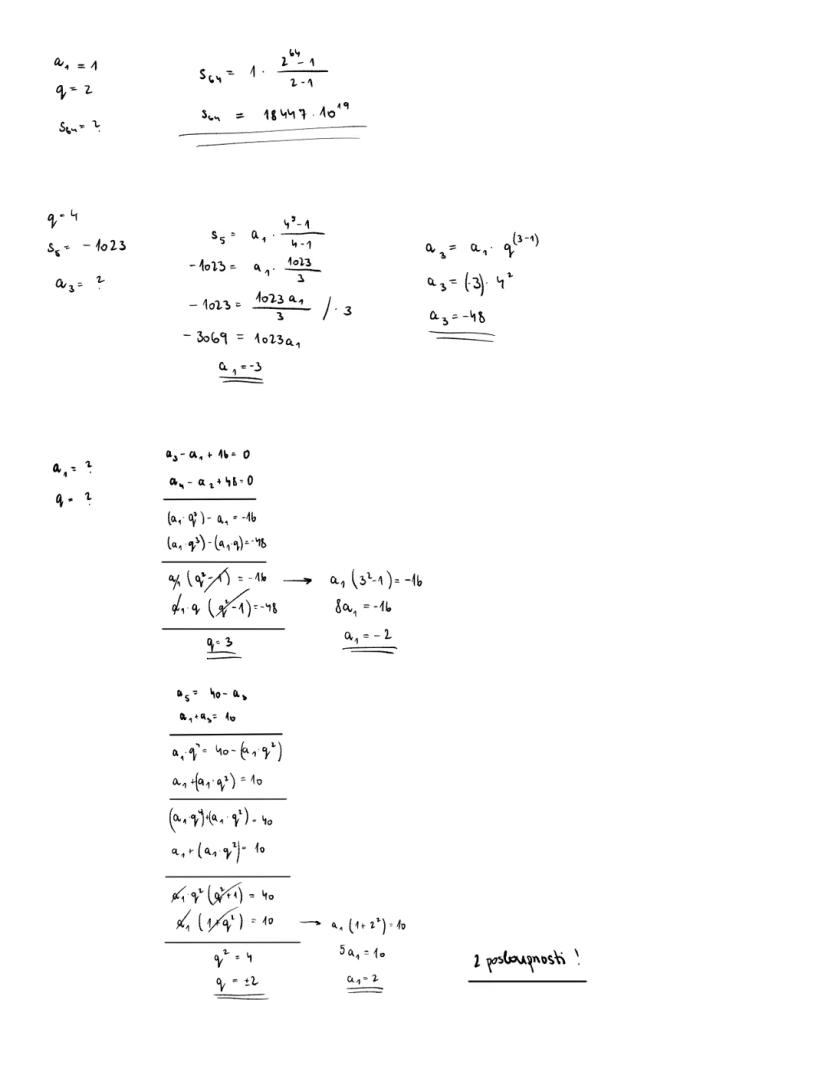 a₁ = 1
q = 2
s₆₄ = ?
s₆₄ = 1 · (2⁶⁴-1)/(2-1)
s₆₄ = 18447 · 10¹⁹
q = 4
s₅ = -1023
a₃ = ?
s₅ = a₁ · (4⁵-1)/(4-1)
-1023 = a₁ · 1023/3
-1023 = 1023 a₁/3 / · 3
-3069 = 1023a₁
a₁ = -3
a₃ = a₁ · q⁽³⁻¹⁾
a₃ = (-3) · 4²
a₃ = -48
a₁ = ?
q = ?
a₃ - a₁ + 16 = 0
a₄ - a₂ + 48 = 0
(a₁ · q²) - a₁ = -16
(a₁ · q³) - (a₁ · q) = -48
a₁ (q²-1) = -16 → a₁ (3²-1) = -16
a₁ · q (q²-1) = -48
8a₁ = -16
q = 3
a₁ = -2
a₅ = 40 - a₃
a₁ + a₃ = 10
a₁ · q⁴ = 40 - (a₁ · q²)
a₁ + (a₁ · q²) = 10
(a₁ · q⁴) + (a₁ · q²) = 40
a₁ + (a₁ · q²) = 10
a₁ · q² (q²+1) = 40
a₁ (1+q²) = 10 → a₁ (1+2²) = 10
q² = 4
5a₁ = 10
q = ±2
a₁ = 2
2 posloupnosti !